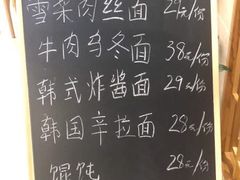 雪菜肉丝面 29元/份
牛肉乌冬面 38元/份
韩式炸酱面 29元/份
韩国辛拉面 28元/份
馄饨 28元/份